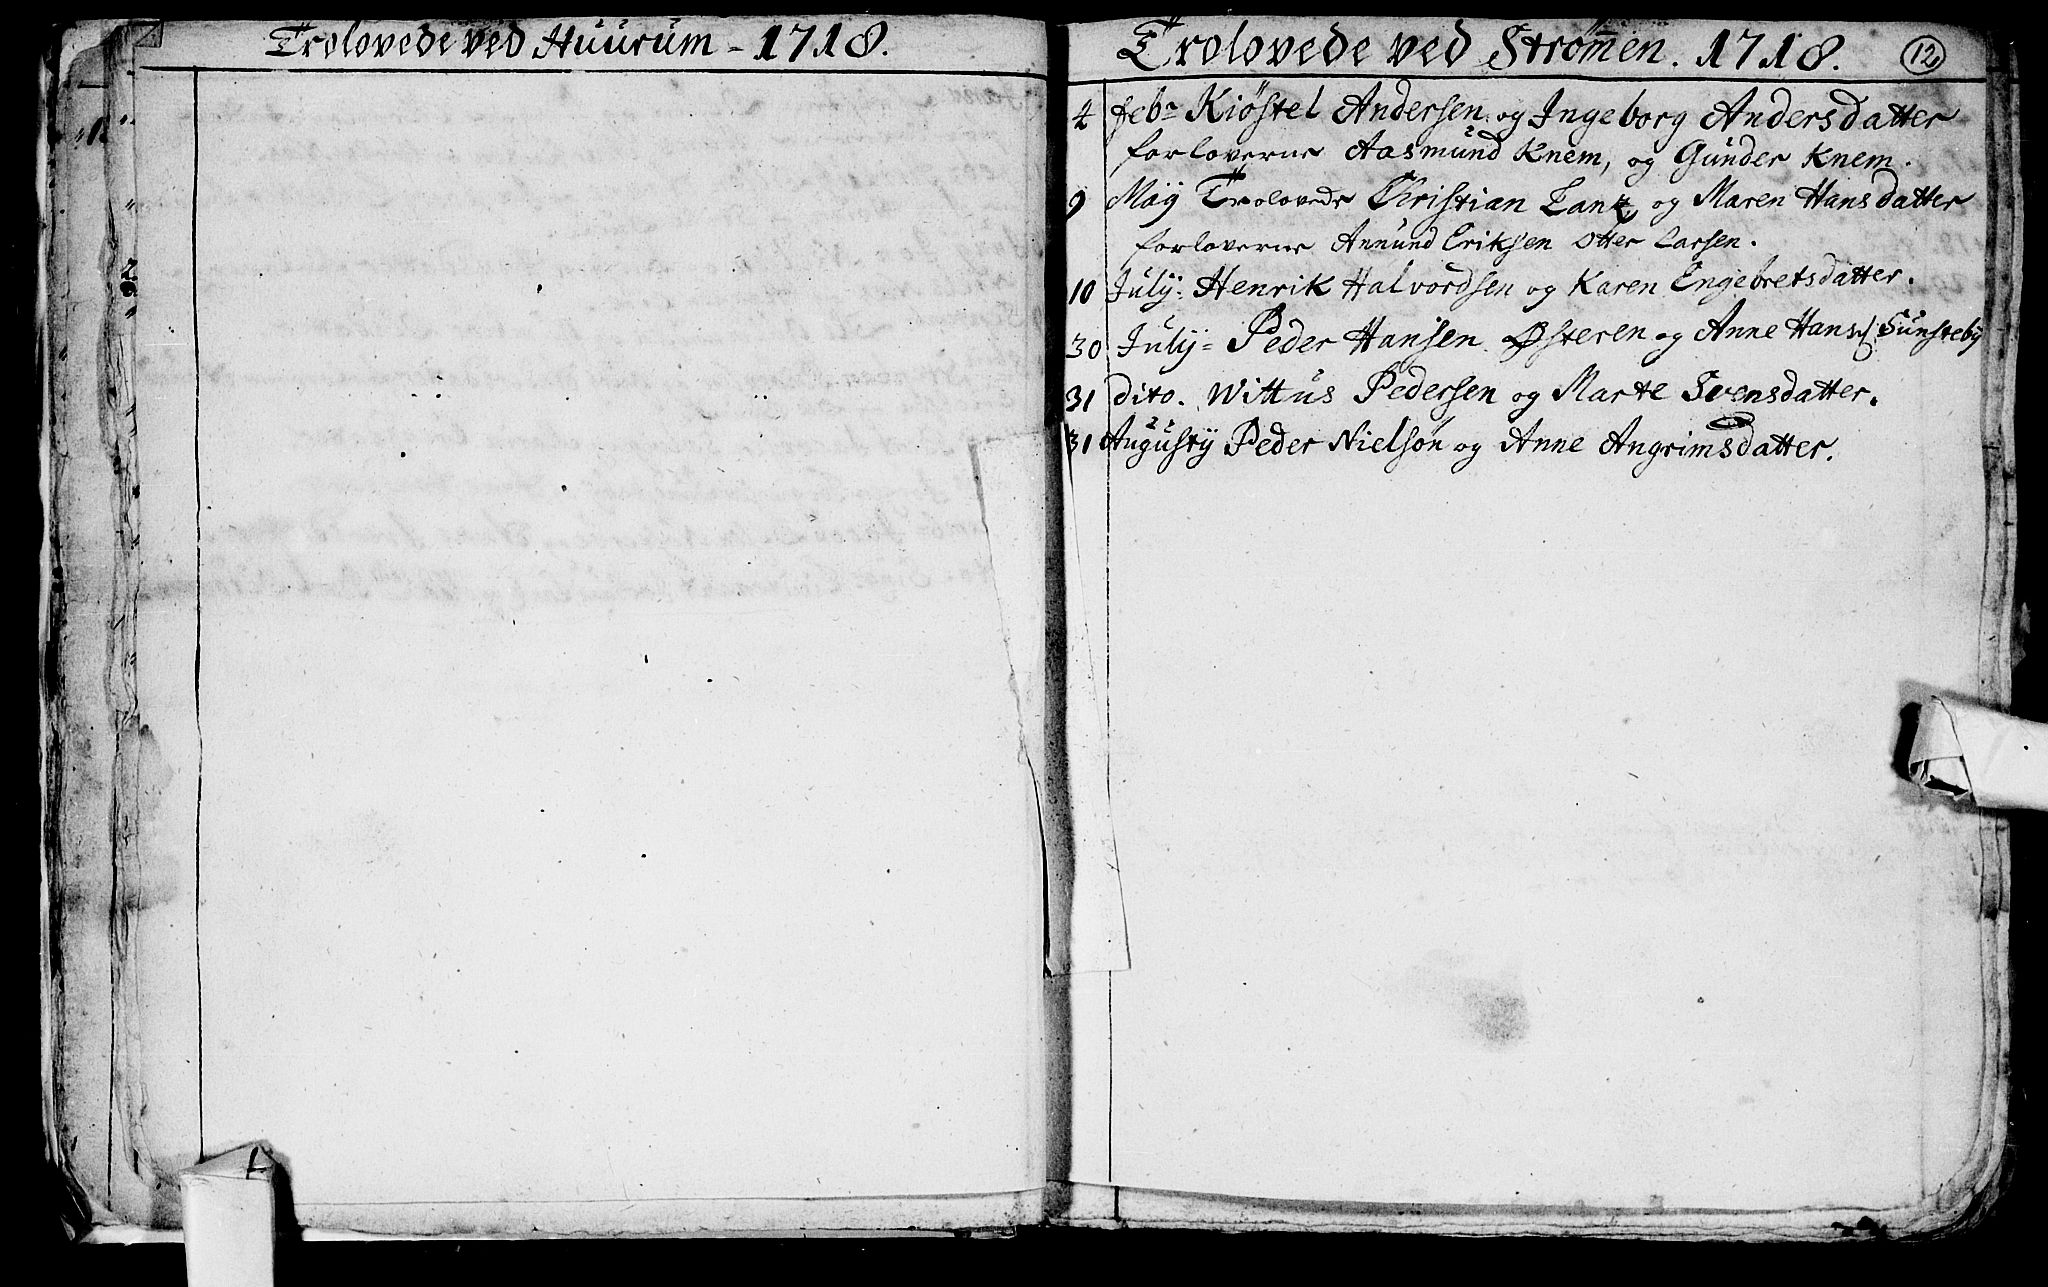 Trolovede ved Huurum - 1718.
Trolovede ved Strømen. 1718.
12
4 febr Kiøstel Andersen og Ingeborg Andersdatter
forloverne Aasmund Knem, og Gunder Knem.
9 May Trolovede Christian Lantz og Maren Hansdatter
forloverne Anund Eriksen Otter Larsen.
10 July- Henrik Halvordsen og Karen Engebretsdatter.
30 July= Peder Hansen Østeren og Anne Hansd Sunsteby
31 dito. Wittus Pedersen og Marte Svensdatter.
31 Augusty Peder Nielsøn og Anne Angrimsdatter.